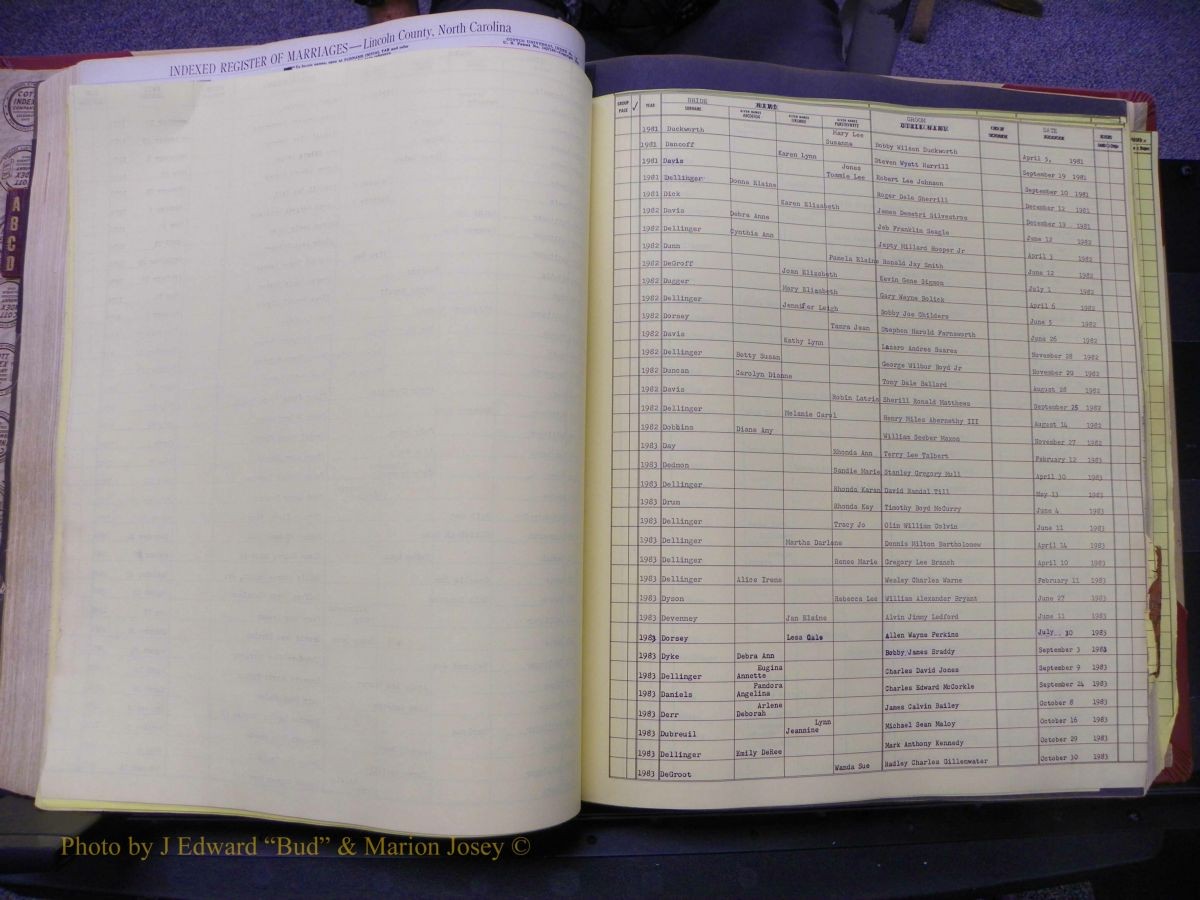 INDEXED REGISTER OF MARRIAGES—Lincoln County, North Carolina
A B C D
GROUP PAGE ✓ YEAR BRIDE SURNAME GROOM DATE
1981 Duckworth Mary Lee Susanna Bobby Wilson Duckworth April 5, 1981
1981 Dancoff Karen Lynn Steven Wyatt Harrill September 19 1981
1981 Davis Jones Tommie Lee Robert Lee Johnson September 10 1981
1981 Dellinger Donna Elaine Roger Dale Sherrill December 12 1981
1981 Dick Karen Elizabeth James Demetri Silvestros December 19 1981
1982 Davis Debra Anne Jeb Franklin Seagle June 12 1982
1982 Dellinger Cynthia Ann Japty Millard Hooper Jr April 3 1982
1982 Dunn Pamela Elaine Ronald Jay Smith June 12 1982
1982 DeGroff Joan Elizabeth Kevin Gene Sigmon July 1 1982
1982 Dugger Mary Elizabeth Gary Wayne Bolick April 6 1982
1982 Dellinger Jennifer Leigh Bobby Joe Childers June 5 1982
1982 Dorsey Tamra Jean Stephen Harold Farnsworth June 26 1982
1982 Davis Kathy Lynn Lazaro Andres Suarez November 28 1982
1982 Dellinger Betty Susan George Wilbur Boyd Jr November 29 1982
1982 Duncan Carolyn Dianne Tony Dale Ballard August 28 1982
1982 Davis Robin Latris Sherill Ronald Matthews September 25 1982
1982 Dellinger Melanie Carol Henry Miles Abernethy III August 14 1982
1982 Dobbins Diane Amy William Seeber Mason November 27 1982
1983 Day Rhonda Ann Terry Lee Talbert February 12 1983
1983 Dedmon Sandie Marie Stanley Gregory Hull April 30 1983
1983 Dellinger Rhonda Karan David Randal Till May 13 1983
1983 Drum Rhonda Kay Timothy Boyd McCurry June 4 1983
1983 Dellinger Tracy Jo Olin William Colvin June 11 1983
1983 Dellinger Martha Darlene Dennis Milton Bartholomew April 14 1983
1983 Dellinger Renee Marie Gregory Lee Branch April 10 1983
1983 Dellinger Alice Irene Wesley Charles Warne February 11 1983
1983 Dyson Rebecca Lee William Alexander Bryant June 27 1983
1983 Devenney Jan Elaine Alvin Jimmy Ledford June 11 1983
1983 Dorsey Lesa Gale Allen Wayne Perkins July 30 1983
1983 Dyke Debra Ann Bobby James Braddy September 3 1983
1983 Dellinger Eugina Annette Charles David Jones September 9 1983
1983 Daniels Pandora Angelina Charles Edward McCorkle September 24 1983
1983 Derr Arlene Deborah James Calvin Bailey October 8 1983
1983 Dubreuil Lynn Jeannine Michael Sean Maloy October 16 1983
1983 Dellinger Emily DeRee Mark Anthony Kennedy October 29 1983
1983 DeGroot Wanda Sue Hadley Charles Gillenwater October 30 1983
Photo by J Edward “Bud” & Marion Josey ©